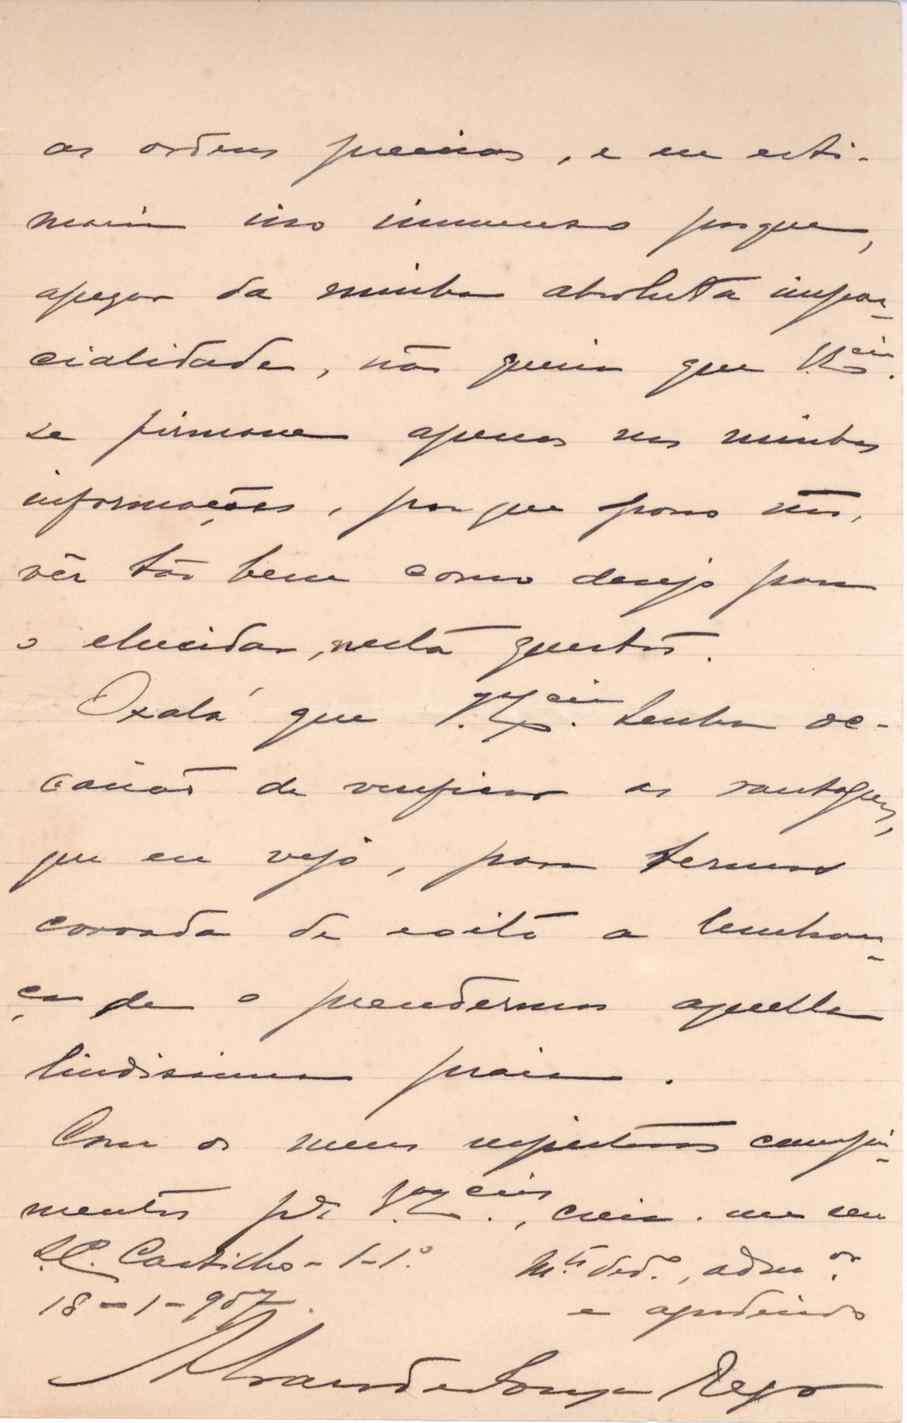 as ordens precisas, e eu esti-
maria isso immenso porque,
apezar da minha absoluta impar-
cialidade, não queria que V. Ex.cia
se firmasse apenas nas minhas
informações, porque posso não,
vêr tão bem como desejo para
o elucidar, nesta questão.
Oxalá que V. Ex.cia tenha oc-
casião de verificar as vantagens,
que eu vejo, para termos
coroada de exito a lembran-
ça de o prendermos aquella
lindissima praia.
Com os meus respeitosos cumpri-
mentos p.ª V. Ex.cias, creia-me seu
Castilho - 1-1º Mto ded.º, adm.or
18-1-907. e
de Souza Rego